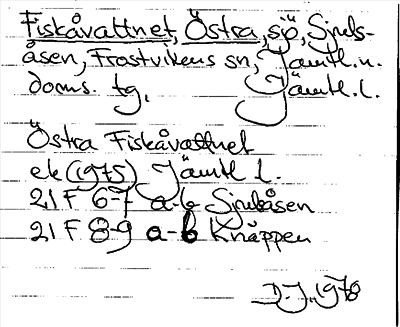 Fiskåvattnet, Östra, sjö, Sjuls-
åsen, Frostvikens sn, Jämtl. n.
doms. tg, Jämtl. l.
Östra Fiskåvattnet
ek (1975) Jämtl l.
21 F 6-7 a-b Sjulsåsen
21 F 8-9 a-b Knäppen
D-J. 1978